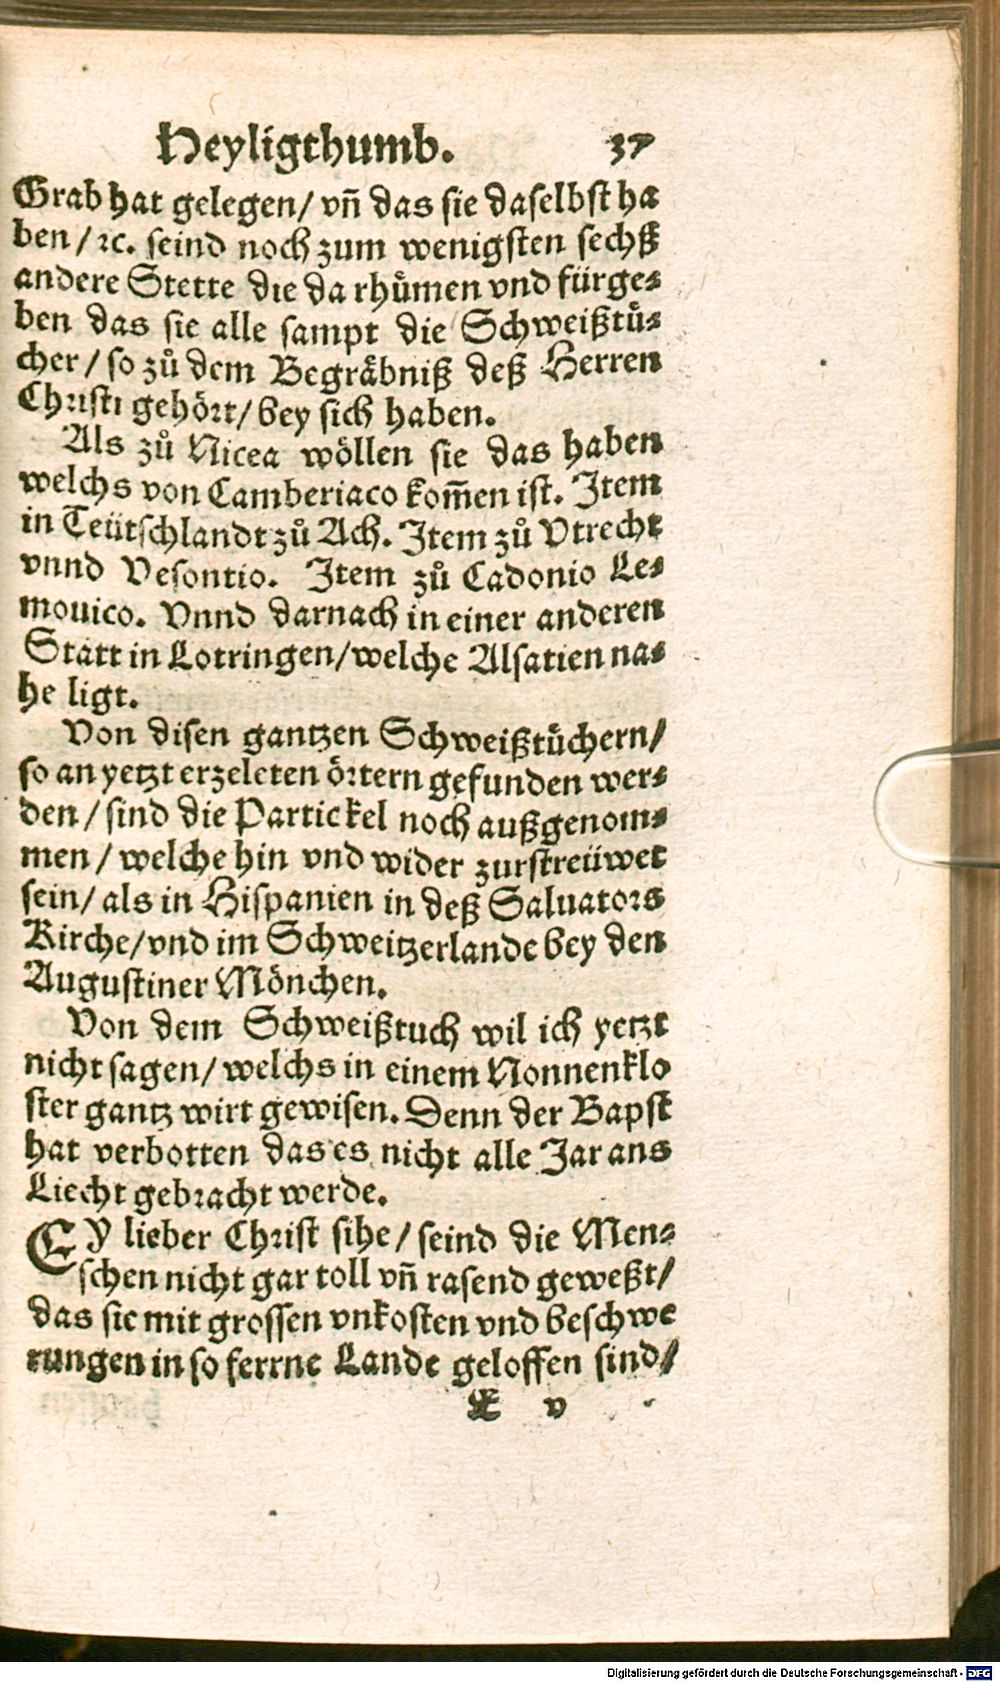 Heyligthumb. 37
Grab hat gelegen/ vñ das sie daselbst ha
ben/ ꝛc. seind noch zum wenigsten sechß
andere Stette die da rhůmen vnd fürge-
ben das sie alle sampt die Schweißtů-
cher/ so zů dem Begräbniß deß Herren
Christi gehört/ bey sich haben.
Als zů Nicea wöllen sie das haben
welchs von Camberiaco kom̃en ist. Item
in Teütschlandt zů Ach. Item zů Vtrecht
vnnd Vesontio. Item zů Cadonio Le-
mouico. Vnnd darnach in einer anderen
Statt in Lotringen/ welche Alsatien na-
he ligt.
Von disen gantzen Schweißtůchern/
so an yetzt erzeleten örtern gefunden wer-
den/ sind die Partickel noch außgenom-
men/ welche hin vnd wider zurstreüwet
sein/ als in Hispanien in deß Saluators
Kirche/ vnd im Schweitzerlande bey den
Augustiner Mönchen.
Von dem Schweißtuch wil ich yetzt
nicht sagen/ welchs in einem Nonnenklo
ster gantz wirt gewisen. Denn der Bapst
hat verbotten das es nicht alle Jar ans
Liecht gebracht werde.
EY lieber Christ sihe/ seind die Men-
schen nicht gar toll vñ rasend geweßt/
das sie mit grossen vnkosten vnd beschwe
rungen in so ferrne Lande geloffen sind/
E v
Digitalisierung gefördert durch die Deutsche Forschungsgemeinschaft - DFG